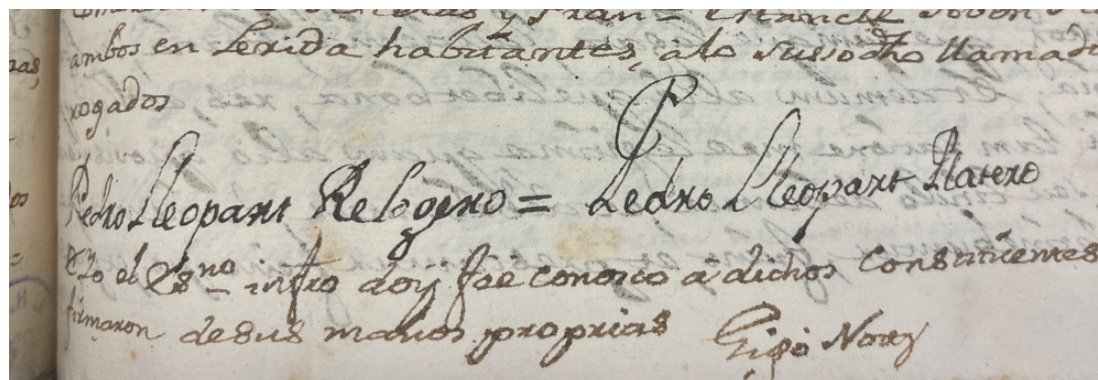 ambos en Lerida habitantes, â lo sussodho llamad
rogados
Pedro Lleopart Relogero = Pedro Lleopart Platero
E Yo el Esno infro doÿ fee conosco â dichos
firmaron de sus manos proprias Gigó Noty